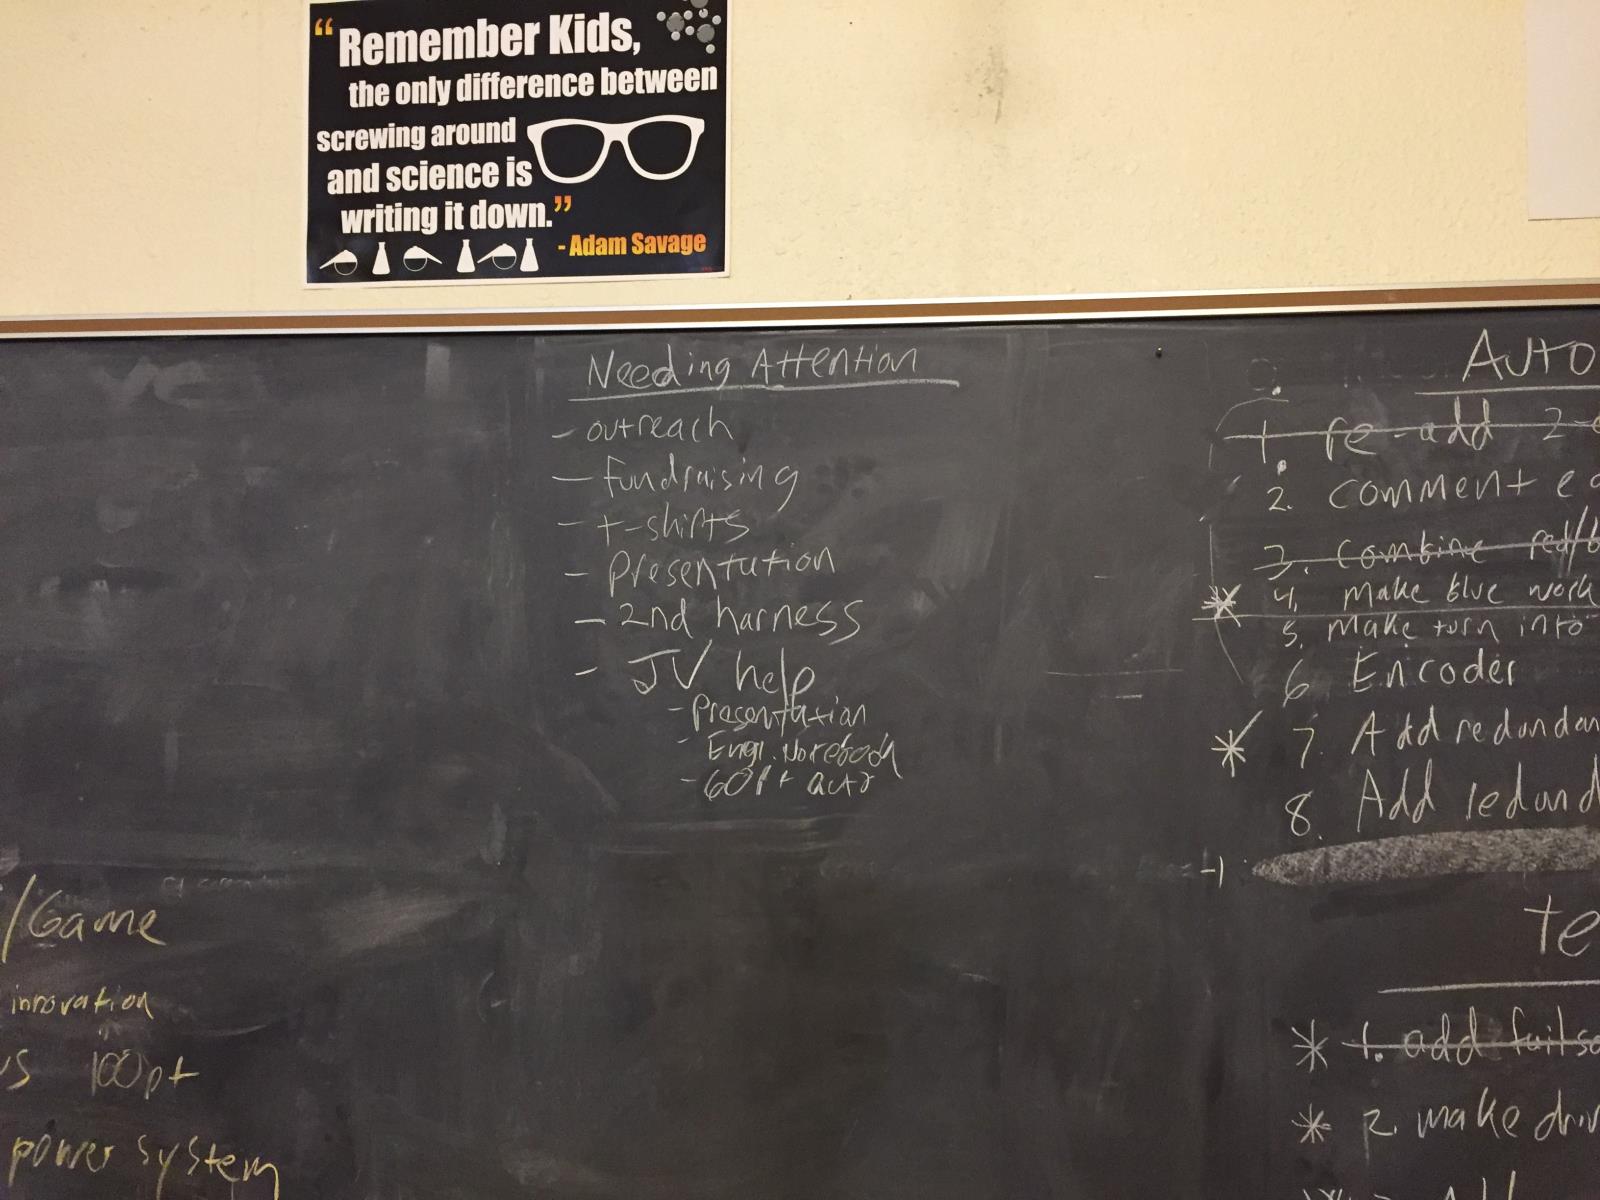 “Remember Kids,
the only difference between
screwing around
and science is
writing it down.”
- Adam Savage
Needing Attention
- outreach
- fundraising
- t-shirts
- Presentation
- 2nd harness
- JV help
- Presentation
- Engr. Notebook
- 60pt auto
/Game
innovation
100pt
power system
AUTO
1. re-add 2-
2. comment
3. combine red/b
* 4. make blue work
5. make turn into
6 Encoder
* 7. Add redundan
8. Add redund
-1
te
* 1. add failsa
* 2. make driv